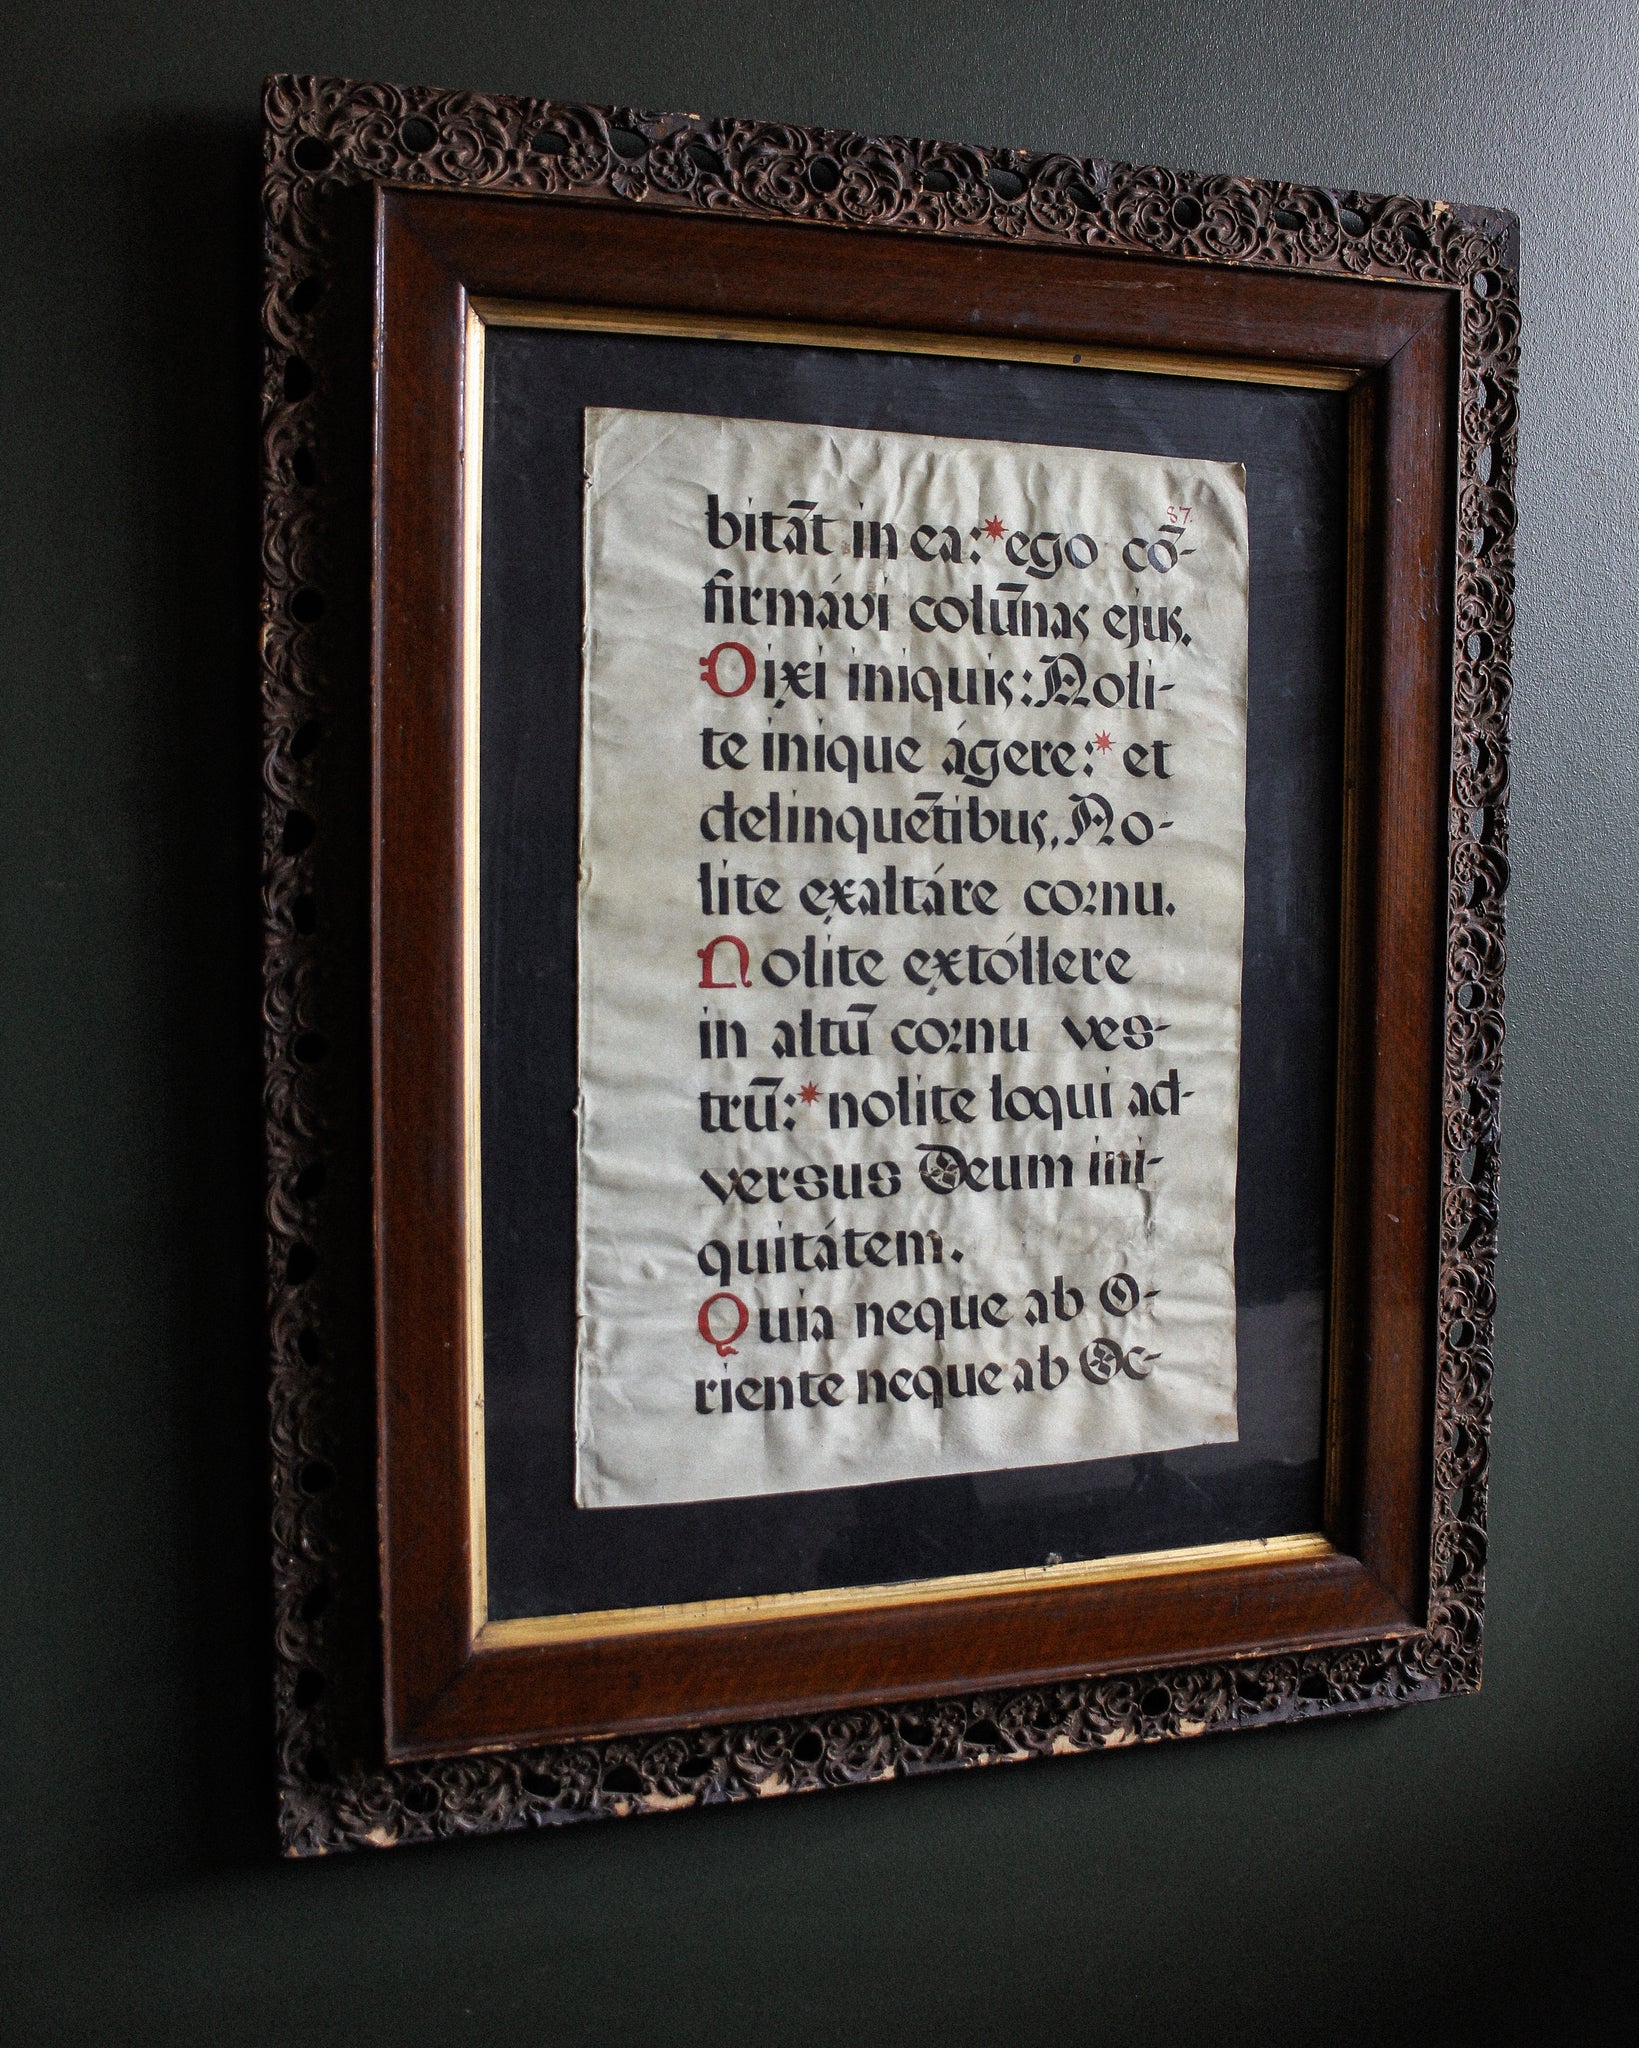 87.
bitãt in ea:*ego cõ-
firmávi colūnas ejus.
Dixi iniquis: Noli-
te inique ágere:* et
delinquētibus, No-
lite exaltáre cornu.
Nolite extóllere
in altū cornu ves-
trū:*nolite loqui ad-
versus Deum ini-
quitátem.
Quia neque ab O-
riente neque ab Oc-